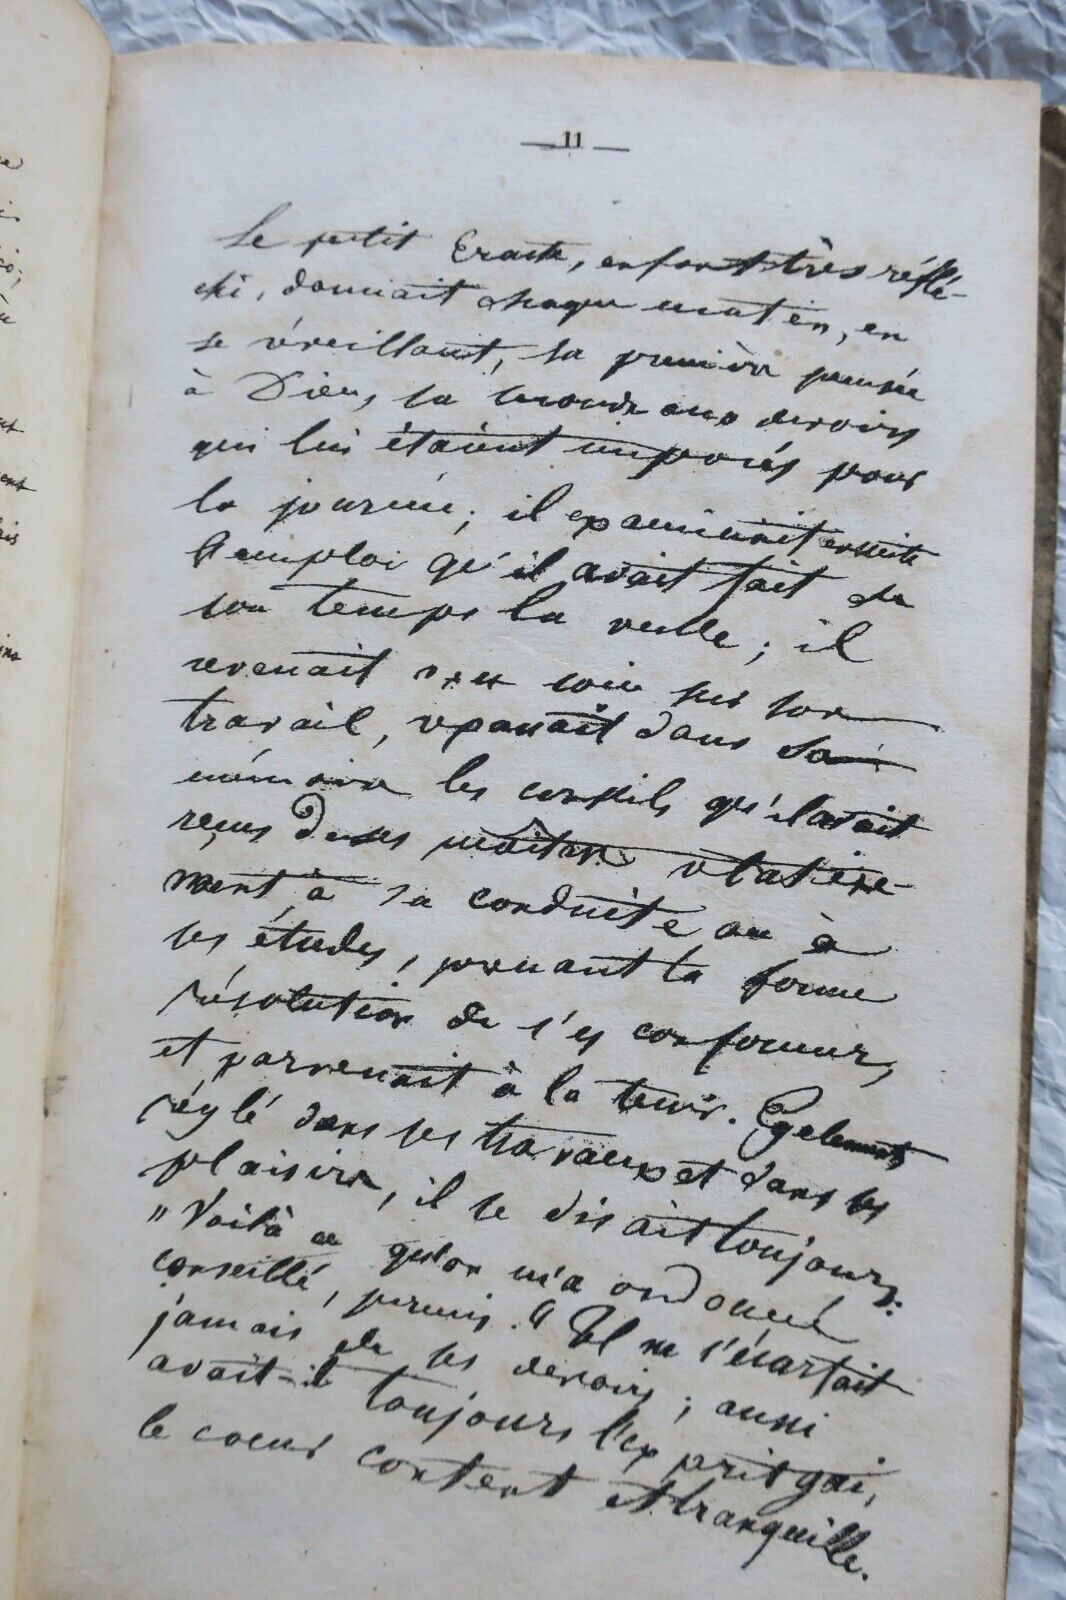 — 11 —
Le petit Eraste, enfant très réflé-
chi, donnait chaque matin, en
se réveillant, sa première pensée
à Dieu, sa seconde aux devoirs
qui lui étaient imposés pour
la journée; il examinait ensuite
l'emploi qu'il avait fait de
son temps la veille; il
revenait avec soin sur son
travail, repassait dans sa
mémoire les conseils qu'il avait
reçus de ses maîtres relative-
ment à sa conduite ou à
ses études, prenant la ferme
résolution de s'y conformer,
et parvenait à la tenir. Egalement
réglé dans ses travaux et dans ses
plaisirs, il se disait toujours:
"Voilà ce qu'on m'a ordonné
conseillé, permis." Il ne s'écartait
jamais de ses devoirs; aussi
avait-il toujours l'esprit gai,
le coeur content et tranquille.